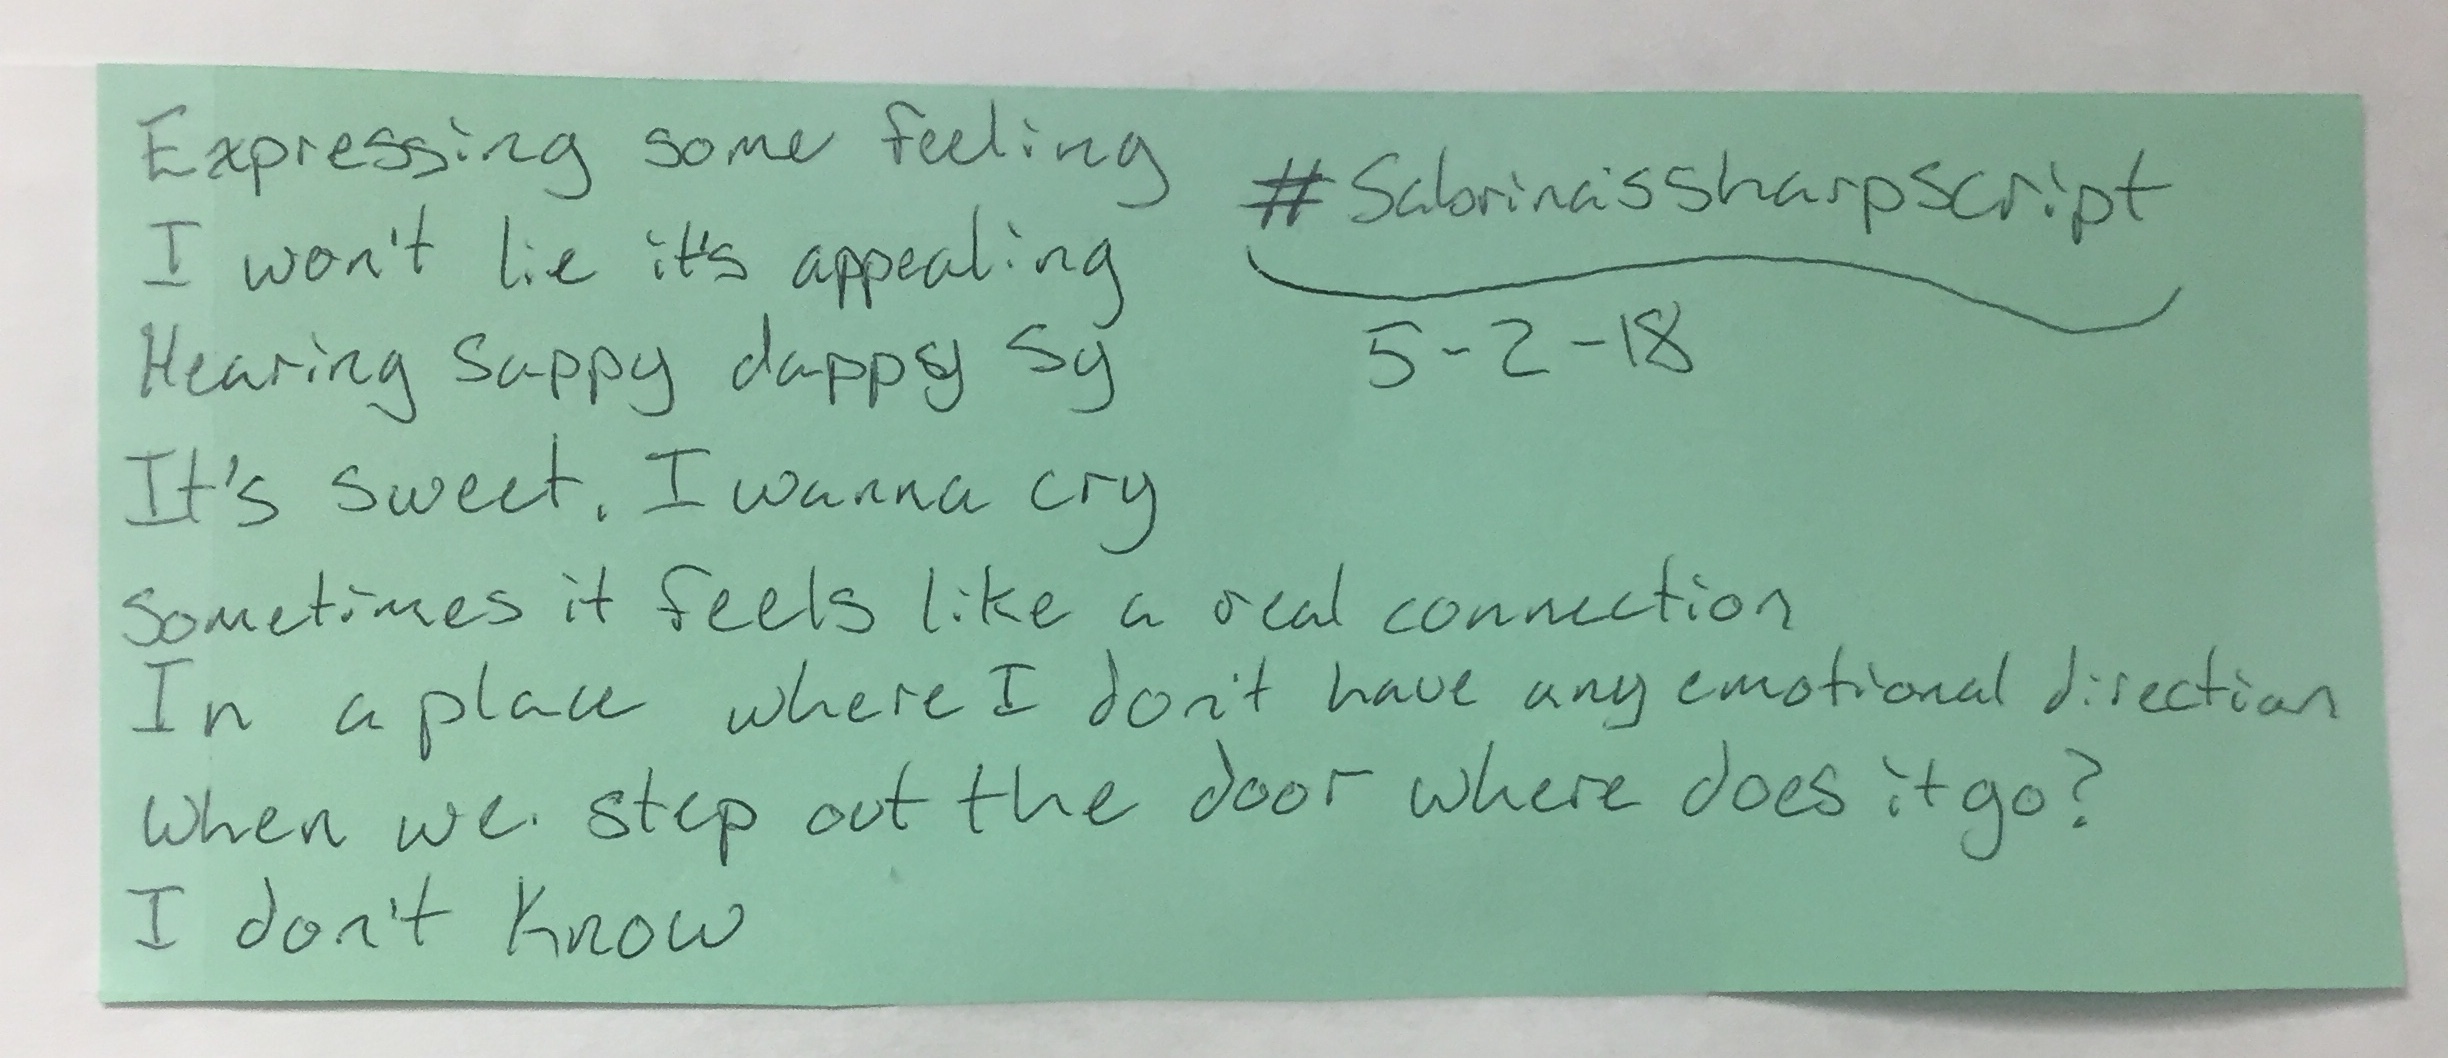 Expressing some feeling
I won't lie it's appealing
Hearing sappy dappy sy
It's sweet. I wanna cry
Sometimes it feels like a real connection
In a place where I don't have any emotional direction
When we. step out the door where does it go?
I don't know
#Sabrinaissharpscript
5-2-18